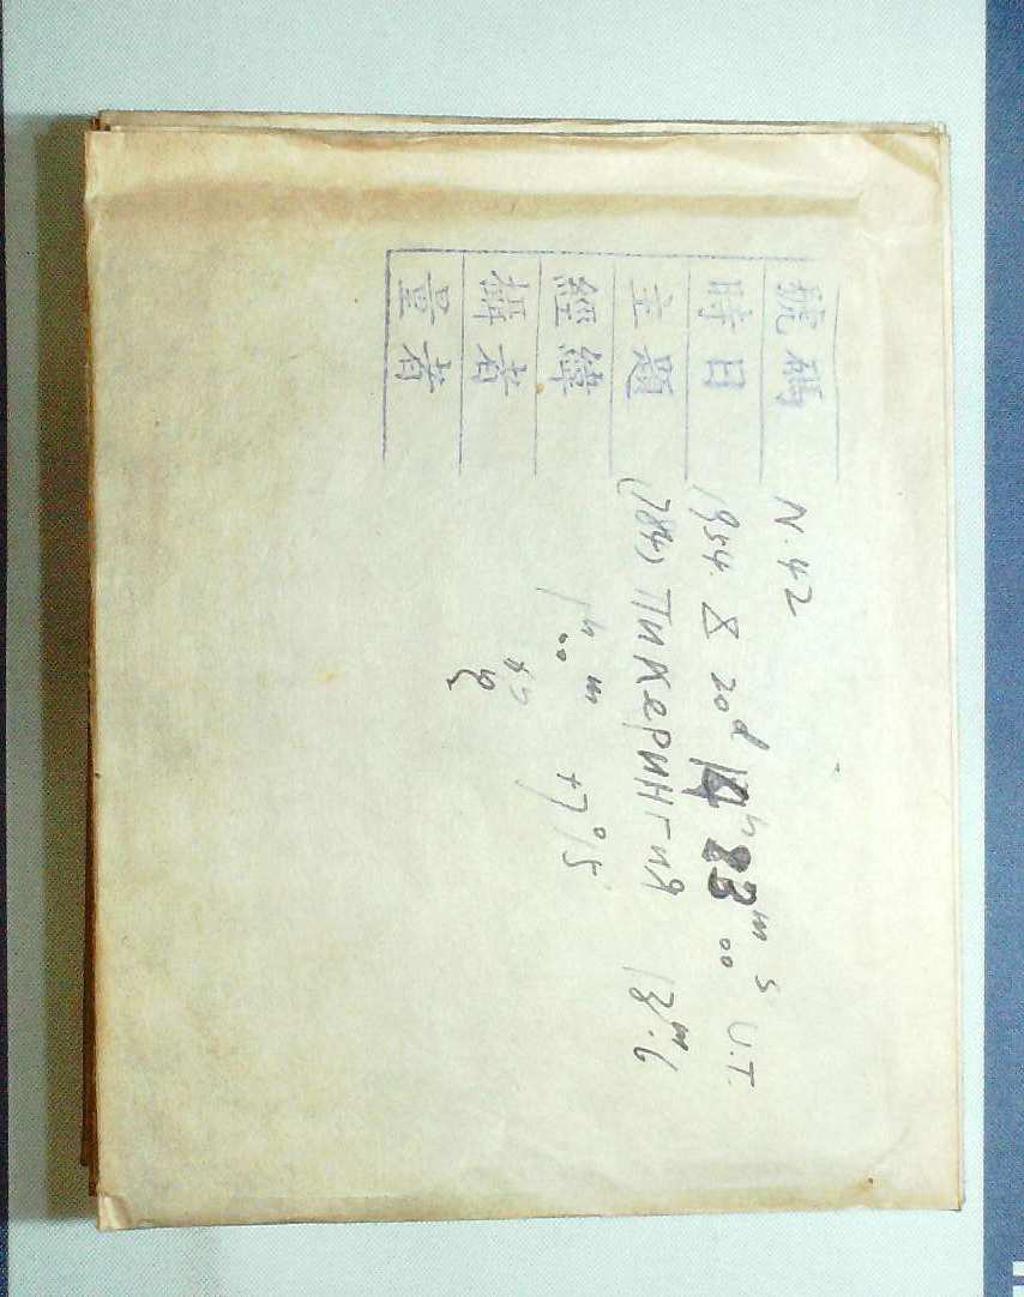 號碼 N.42
時日 1954. X 20d 14h 23m 00s U.T.
主題 (784) Пикерингия 13m.6
經緯 1h 00m +7°.5
攝者
量者